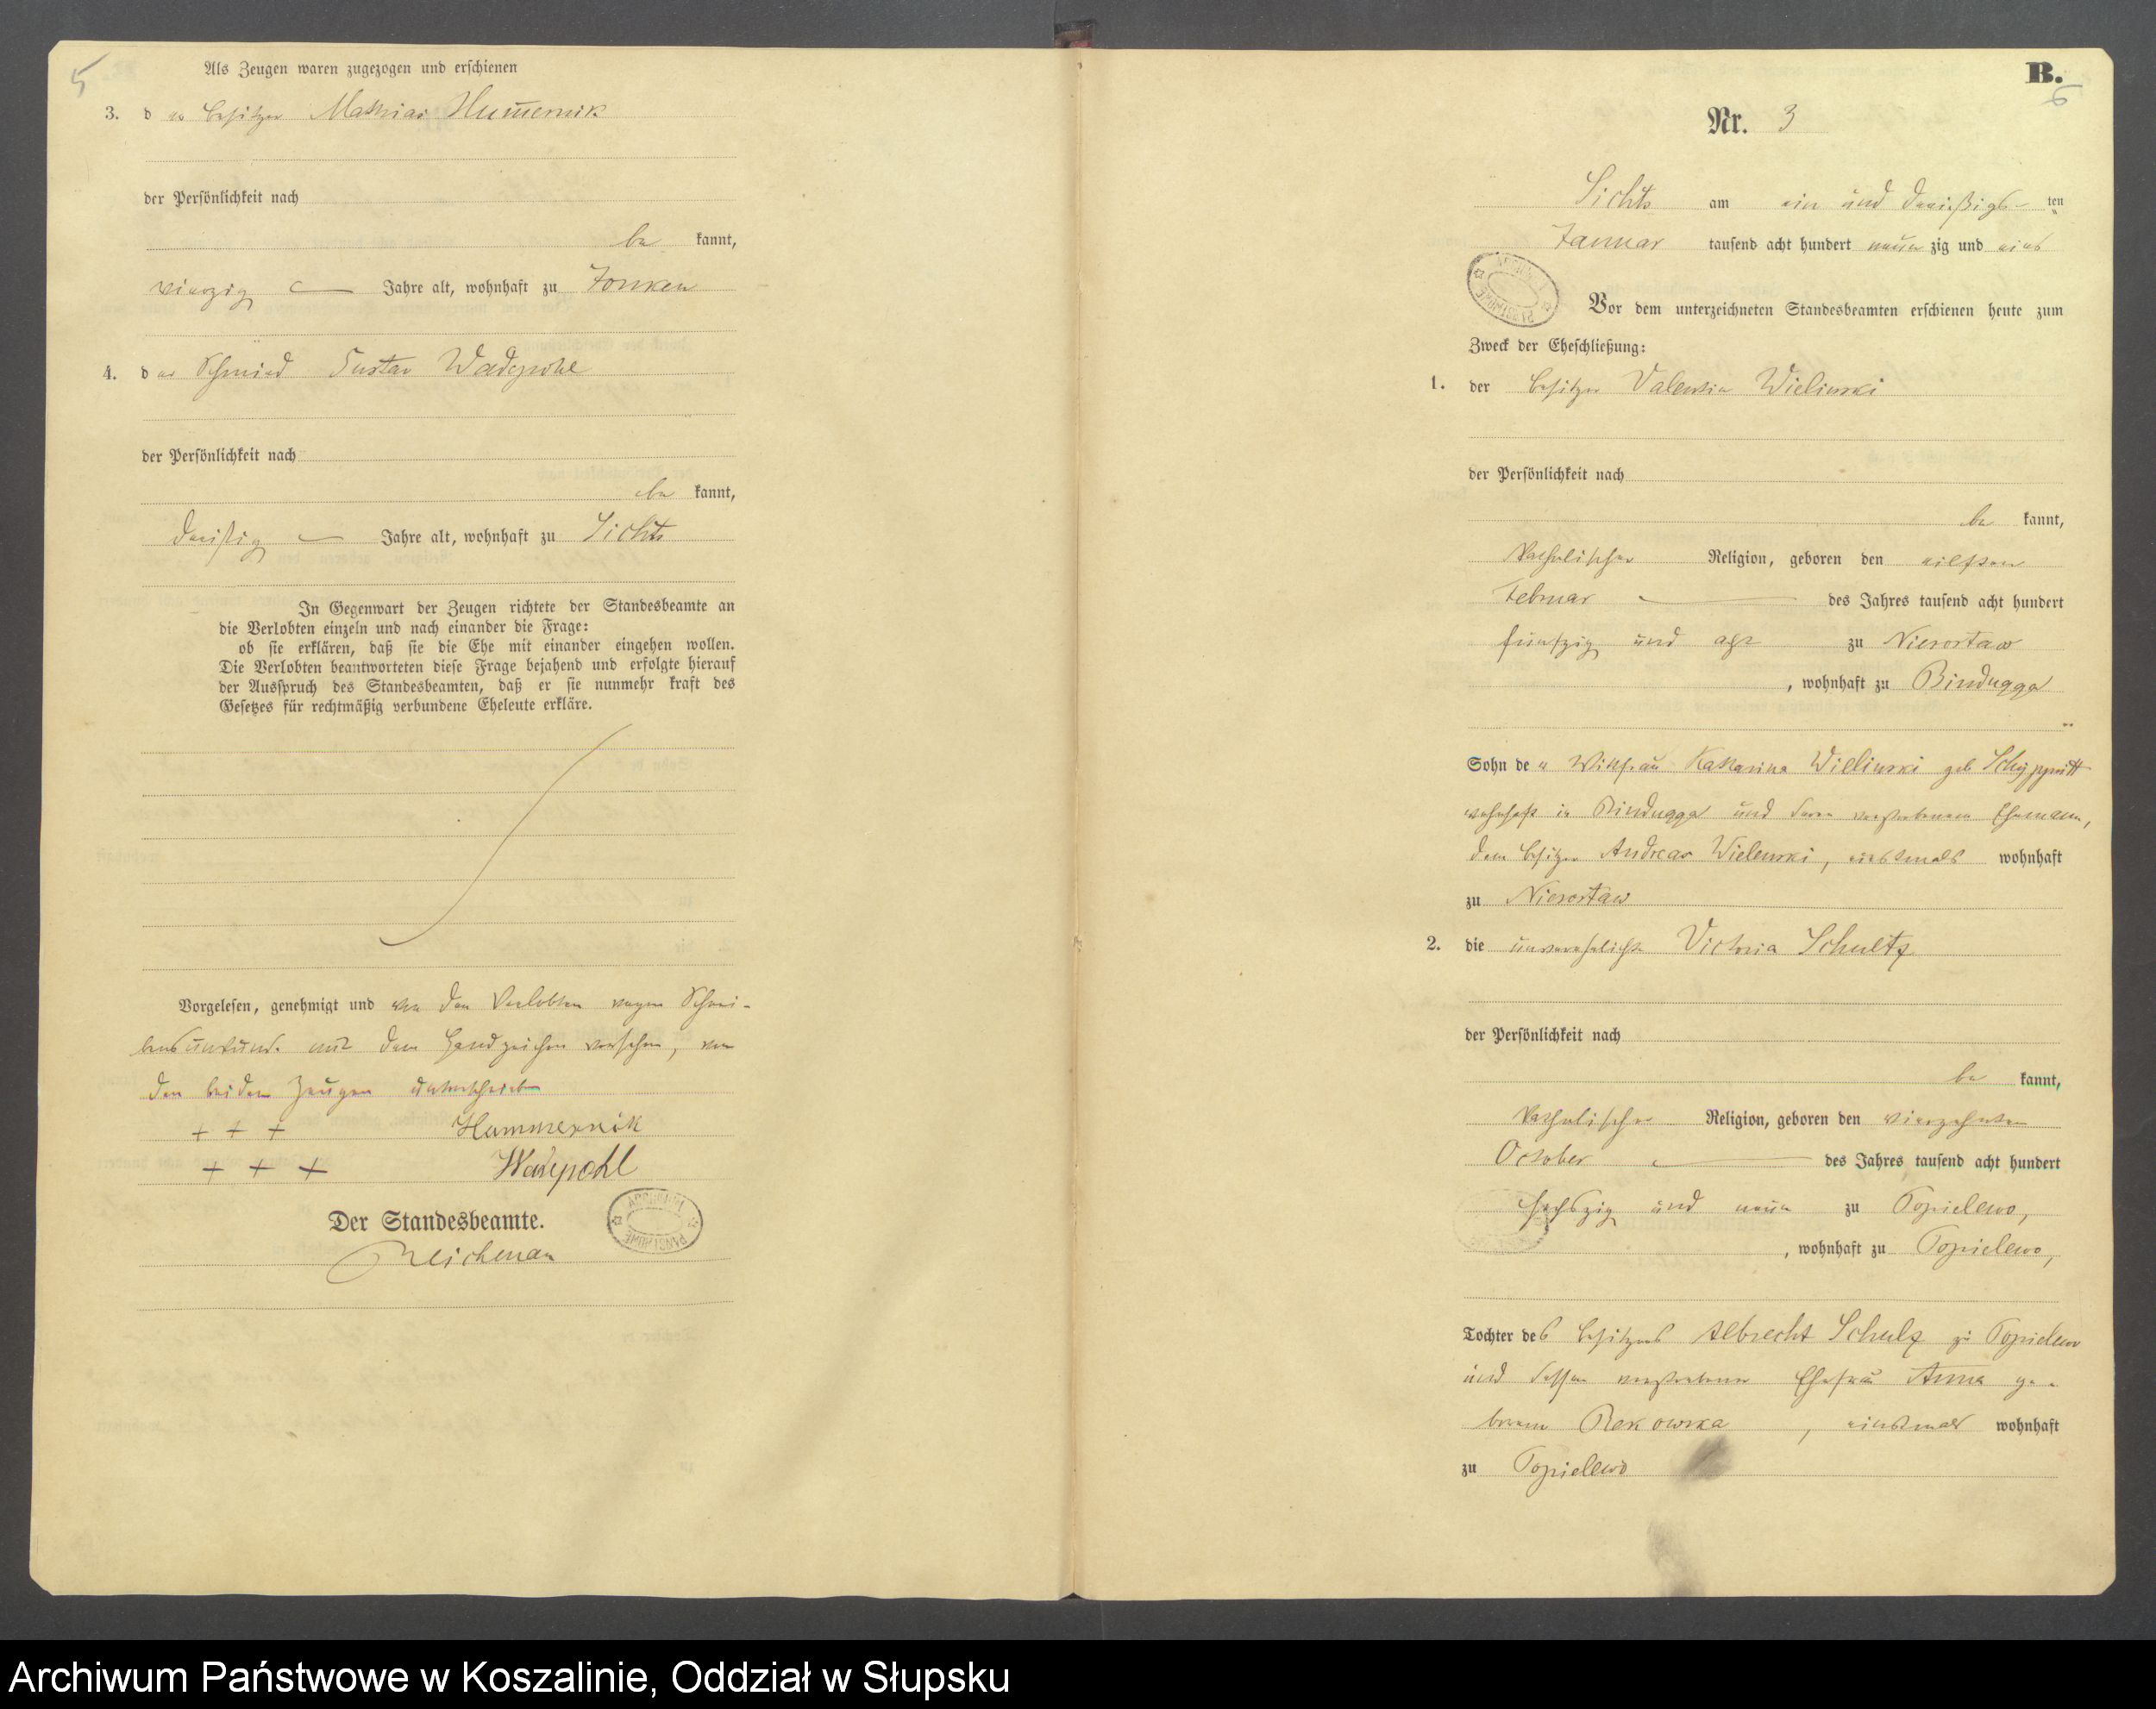 5
Als Zeugen waren zugezogen und erschienen
3. d er Besitzer Mathias Hum̅ernik
der Persönlichkeit nach
be kannt,
vierzig Jahre alt, wohnhaft zu Zonken
4. d er Schmied Gustav Wadepohl
der Persönlichkeit nach
be kannt,
dreißig Jahre alt, wohnhaft zu Lichts
In Gegenwart der Zeugen richtete der Standesbeamte an
die Verlobten einzeln und nach einander die Frage:
ob sie erklären, daß sie die Ehe mit einander eingehen wollen.
Die Verlobten beantworteten diese Frage bejahend und erfolgte hierauf
der Ausspruch des Standesbeamten, daß er sie nunmehr kraft des
Gesetzes für rechtmäßig verbundene Eheleute erkläre.
Vorgelesen, genehmigt und von den Verlobten wegen Schrei-
bensunkunde mit dem Handzeichen versehen, von
den beiden Zeugen unterschrieben
+ + + Hummernik
+ + + Wadepohl
Der Standesbeamte.
Reichenau
B.
6
Nr. 3
am ein und dreißigs- ten
Januar tausend acht hundert neun zig und eins
Vor dem unterzeichneten Standesbeamten erschienen heute zum
Zweck der Eheschließung:
1. der Besitzer Valentin Wielinski
der Persönlichkeit nach
be kannt,
katholischer Religion, geboren den eilften
Februar des Jahres tausend acht hundert
fünfzig und acht zu Niesostaw
, wohnhaft zu Bindugga
Sohn de r Wittfrau Katharina Wielinski geb
wohnhaft in Bindugga und deren verstorbenen Ehemann,
dem Besitzer Andreas Wielenski, einstmals wohnhaft
zu Niesostaw
2. die unverehelichte Victoria Schultz
der Persönlichkeit nach
be kannt,
katholischer Religion, geboren den vierzehnten
October des Jahres tausend acht hundert
sechszig und neun zu Topielewo,
, wohnhaft zu Topielewo,
Tochter des Besitzers Albrecht Schulz zu Topielewo
und dessen verstorbener Ehefrau Anna ge-
borenen Rekowska, einstmals wohnhaft
zu Topielewo
Archiwum Państwowe w Koszalinie, Oddział w Słupsku